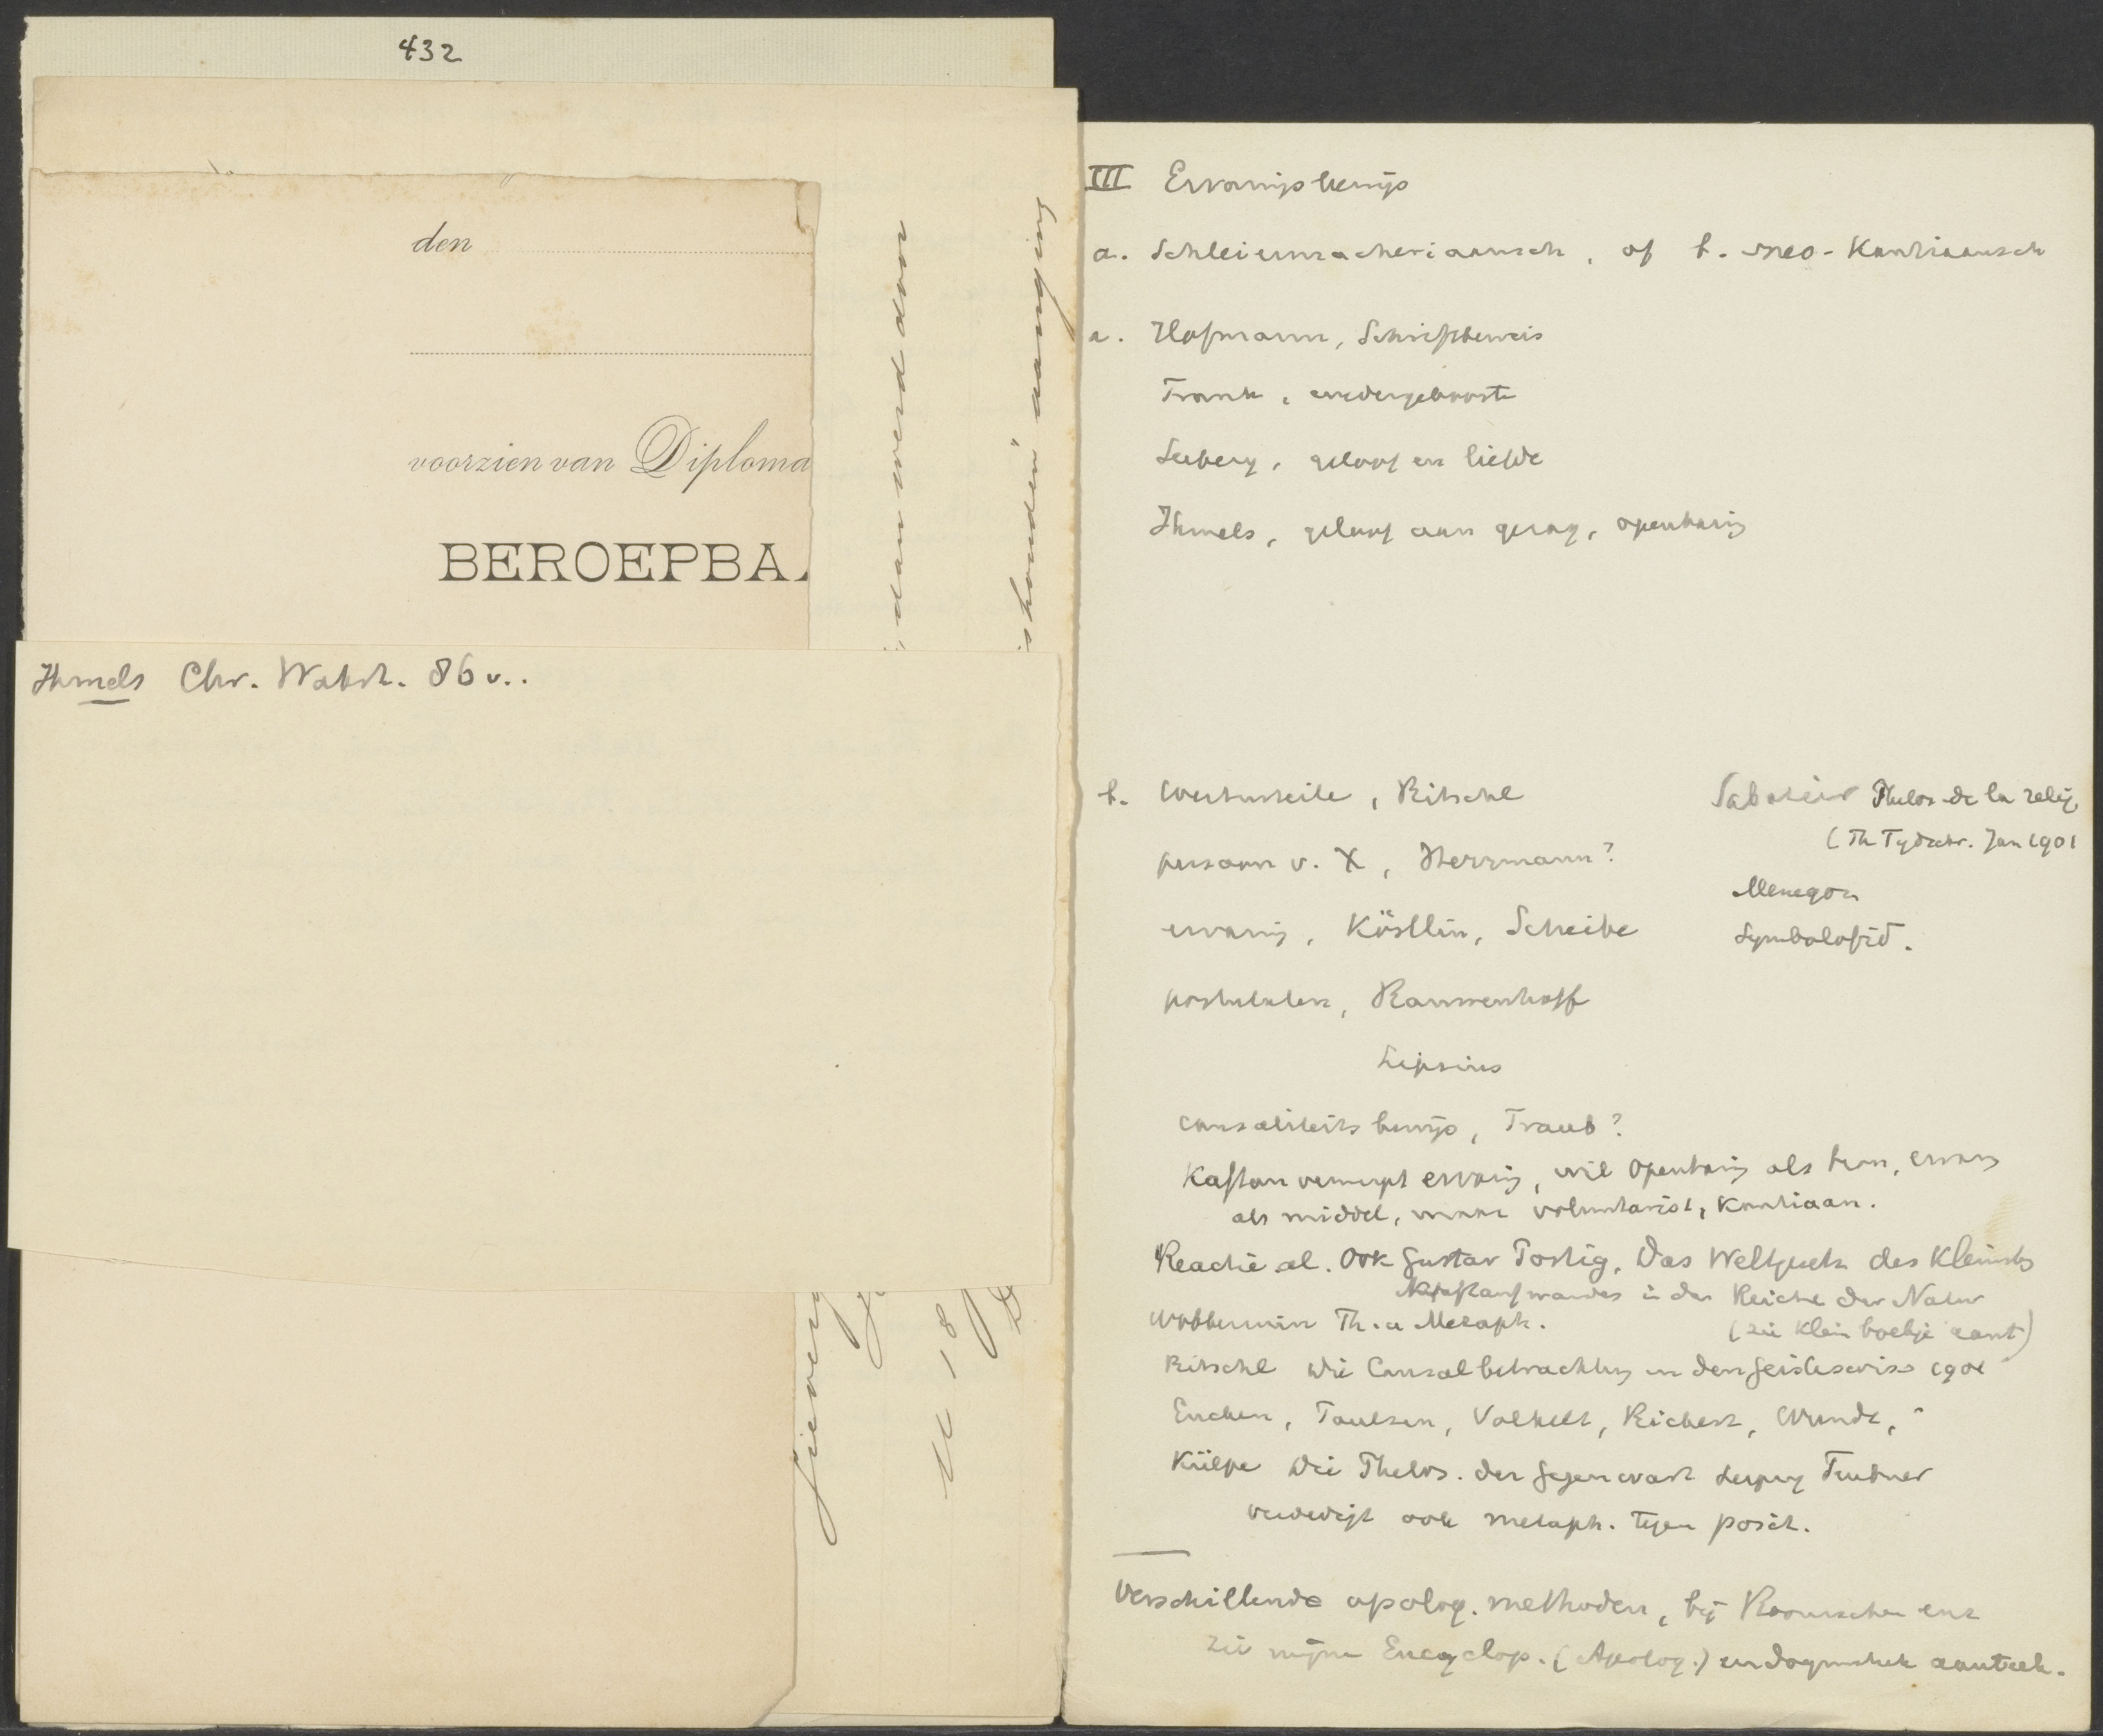 432
den
voorzien van Diploma
BEROEPBA
dan werd door
houden" aanging
Ihmels Chr. Wahrh. 86 v..
11 18
III Ervaringsbewijs
a. Schleiermacheriaansch, of b. neo-Kantiaansch
a. Hofmann, Schriftbeweis
Frank, wedergeboorte
Seeberg, geloof en liefde
Ihmels, geloof aan gezag, openbaring
b. Werturteile, Ritschl
persoon v. X, Herrmann?
ervaring, Köstlin, Scheibe
postulaten, Rauwenhoff
Lipsius
causaliteitsbewijs, Traub?
Kaftan verwerpt ervaring, wil openbaring als bron, ervaring
als middel, maar voluntarist, Kantiaan.
Sabatier Philos de la relig.
(Th Tydschr. Jan 1901
Menegoz
Symbolofid.
Reactie al. Ook Gustav Portig, Das Weltgesetz des kleinsten
Kraftaufwandes in den Reiche der Natur
(zie klein boekje aant)
Wobbermin Th. u Metaph.
Ritschl Die Causalbetrachtung in den Geisteswiss 1901
Eucken, Paulsen, Volkelt, Rickert, Wundt,
Külpe Die Philos. der Gegenwart Leipzig Teubner
verdedigt ook metaph. tegen posit.
Verschillende apolog. methoden, bij Roomschen enz
zie mijne Encyclop. (Apolog.) en dogmatiek aanteek.